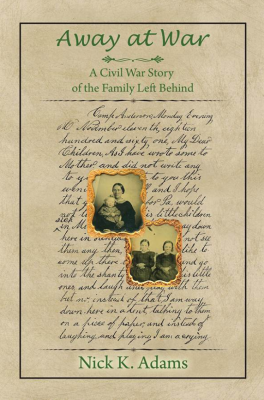 Away at War
A Civil War Story
of the Family Left Behind
Camp Anderson, Monday Evening
November eleventh, eighteen
hundred and sixty one, My Dear
Children, As I have wrote home to
Mother and did not write any
to you this
and I hope
that for Pa. would
not little children
in way down
here in not see
them any like to
some up there and go
into the shanty little
ones and laugh and play with them
but no; instead of that I am way
down here in a tent, talking to them
on a piece of paper, and instead of
laughing and playing I am a crying
Nick K. Adams